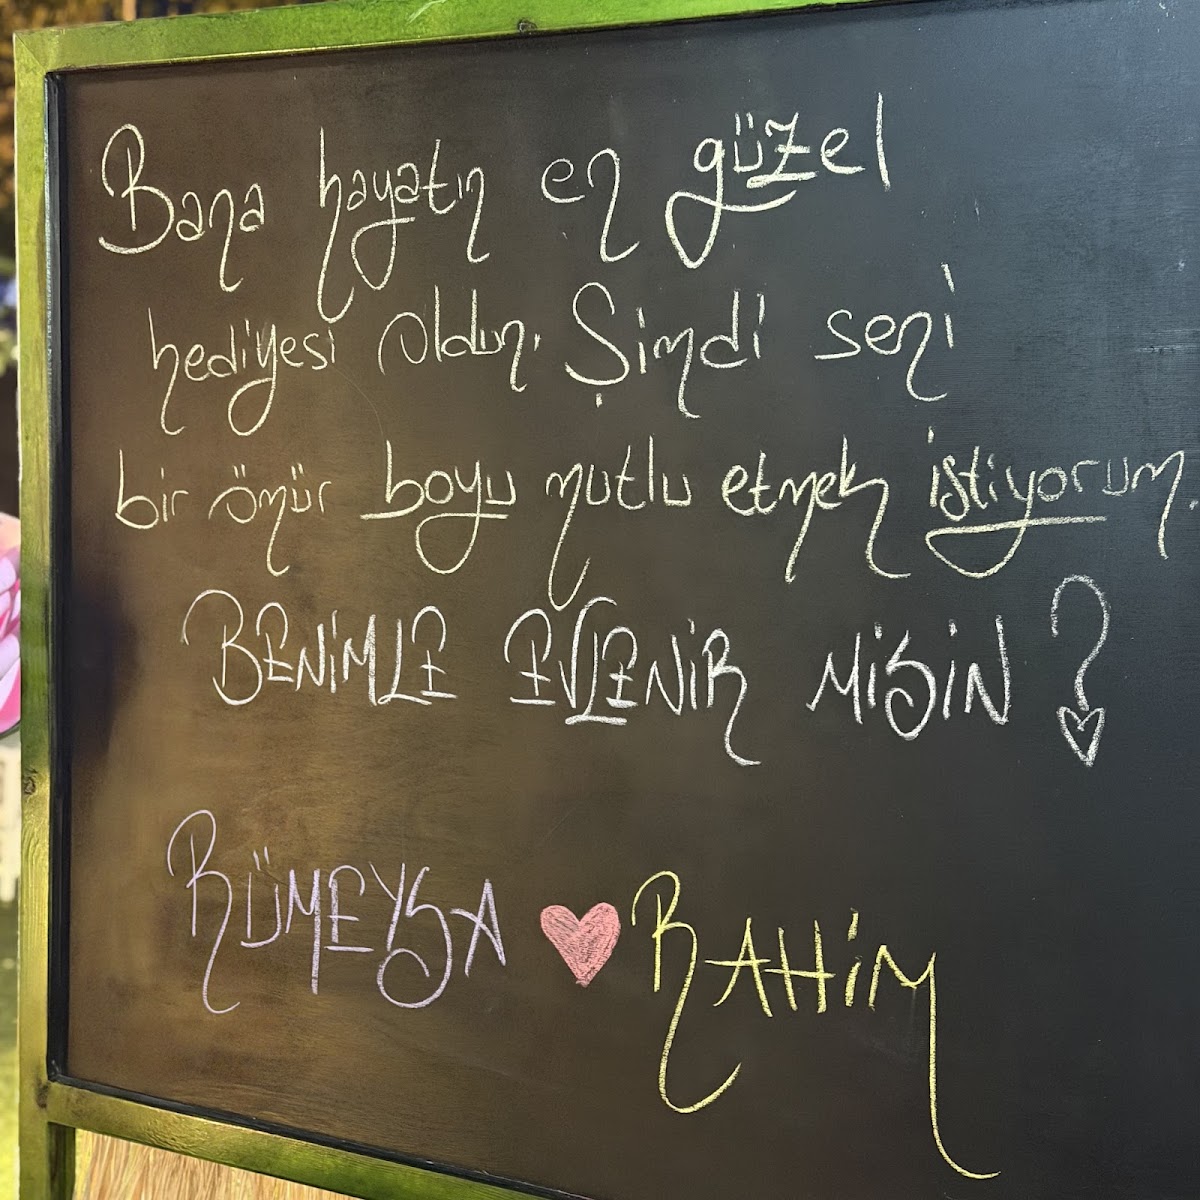 Bana hayatın en güzel
hediyesi oldun. Şimdi seni
bir ömür boyu mutlu etmek istiyorum.
BENİMLE EVLENİR MİSİN ?
RÜMEYSA RAHİM